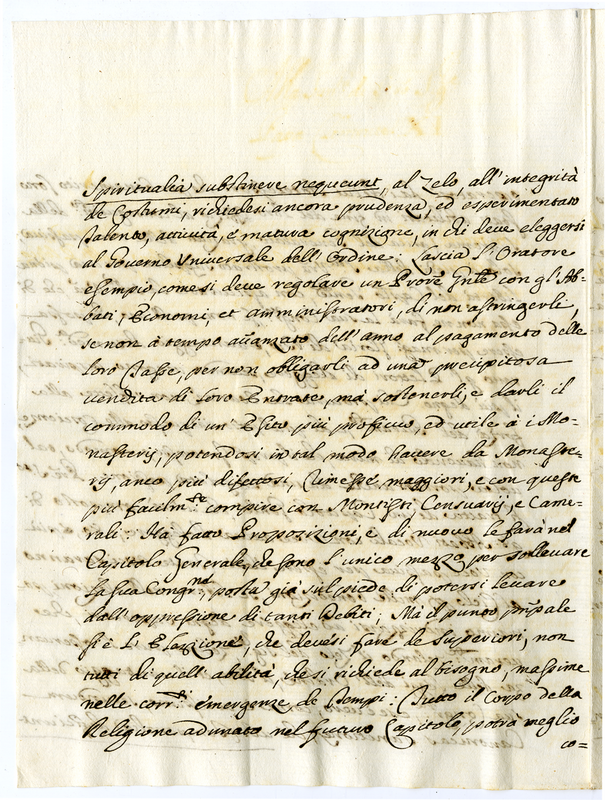 Spiritualia substinere nequeunt, al Zelo, all'integrità
de Costumi, richiedesi ancora prudenza, ed esperimentato
Talento, attività, e matura cognizione, in chi deve eleggersi
al Governo Universale dell'Ordine: Lascia l'Oratore
esempio, come si deve regolare un Provre Gnłe con gl'Ab-
bati, Economi, et amministratori, di non astringerli,
se non à tempo avanzato dell'anno al pagamento delle
loro Tasse, per non obligarli ad una precipitosa
vendita di loro Entrate, mà sostenerli, e darli il
commodo di un'Esito più proficuo, ed utile à i Mo-
nasterij, potendosi in tal modo havere da Monaste-
rij, anco più difettosi, Rimesse maggiori, e con queste
più facilmte compire con Montisti, Censuarij, e Came-
rali: Hà fatto Proposizioni, e di nuovo le farà nel
Capitolo Generale, che sono l'unico mezzo per sollevare
la sua Congrne, posta già sul piede di potersi levare
dall'oppressione di tanti Debiti; Mà il punto prñpale
si è l'Elezzione, che devesi fare de Superiori, non
tutti di quell'abilità, che si richiede al bisogno, massime
nelle corrti emergenze de Tempi: Tutto il Corpo della
Religione adunato nel futuro Capitolo, potrà meglio
co=